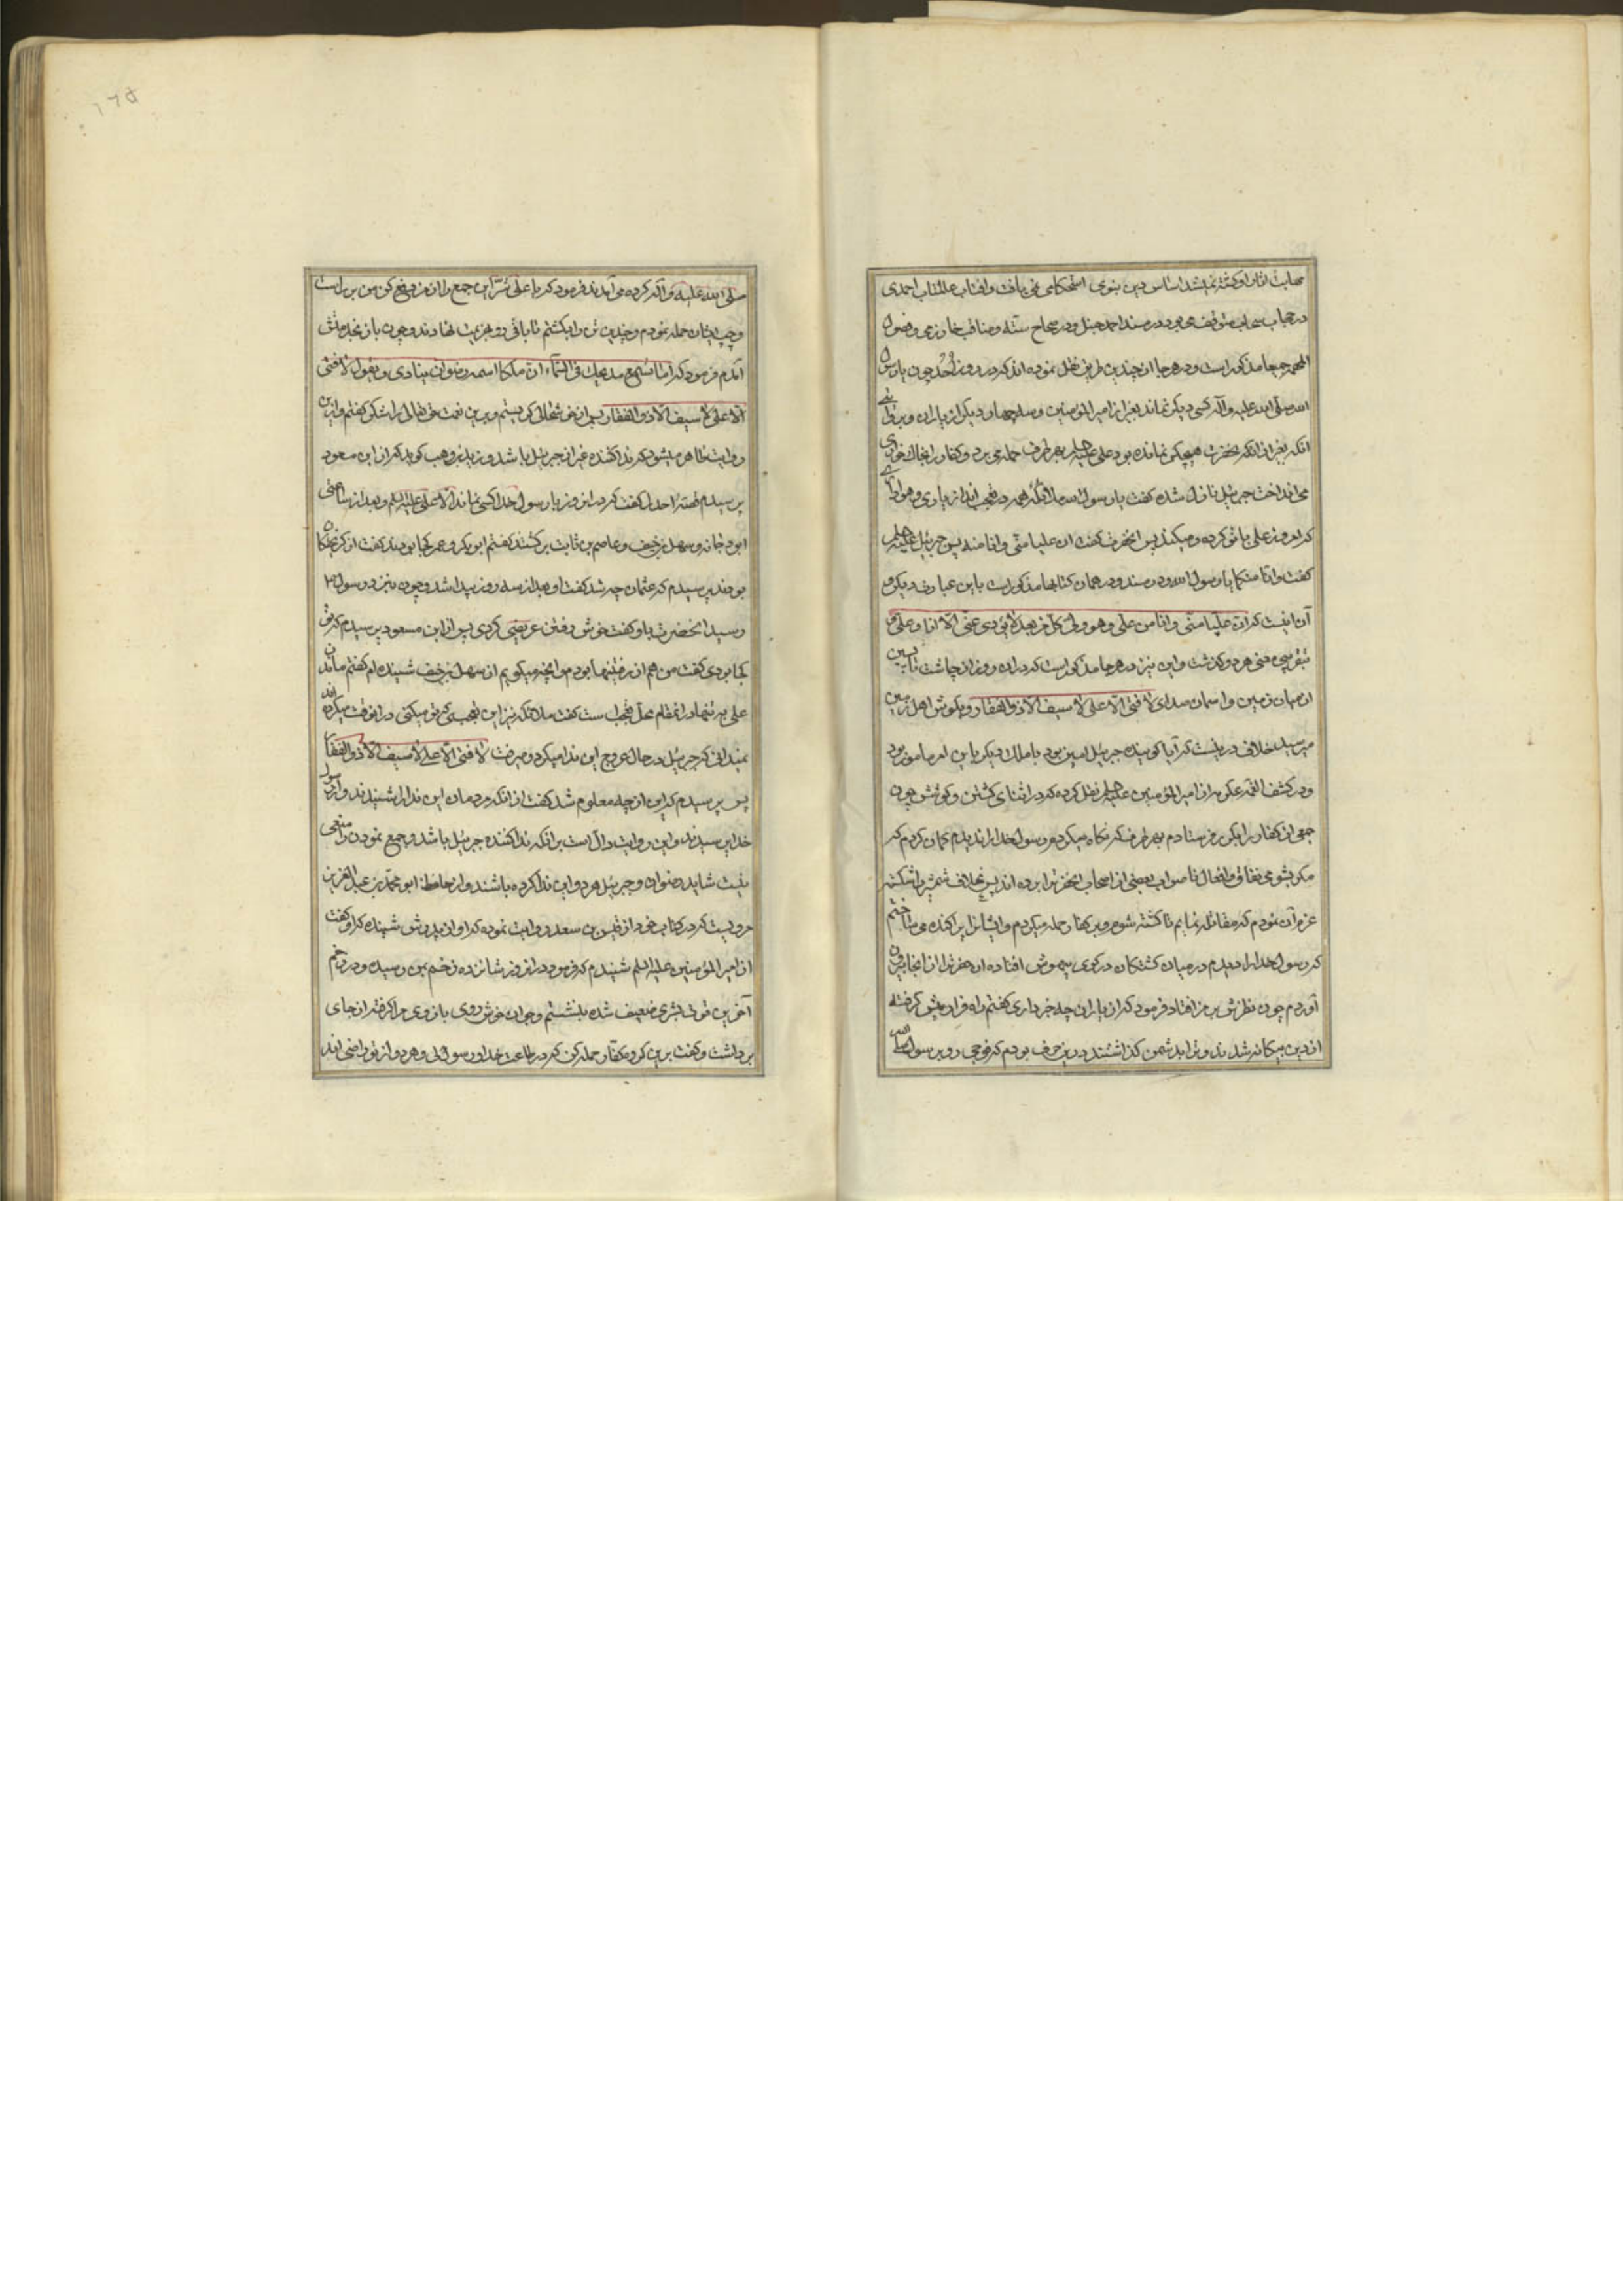 صلابت اثار او کشته نمیشد اساس دین نبوی استحکامی نمی یافت و افتاب عالمتاب احمدی
در حجاب سحاب متوقف می بود در مسند احمد حنبل و در صحاح سته و مناقب خوارزمی و فصول
المهمه جمیعا مذکور است و در هر جا از چندین طریق نقل نموده اند که در روز اُحُد چون با رسول
الله صلی الله علیه و آله کسی دیکر نماند بغیر از امیر المؤمنین و سه چهار دیکر از یاران و بروایتی
انکه بغیر از انکه بحضرت هیچکس نمانده بود علی علیه السلم بهر طرف حمله می برد و کفار را بخاک خواری
می انداخت جبرئیل نازل شده کفت یا رسول الله ملائکه همه در تعجب اند از یاری و مواساتی
که امروز علی با تو کرده و میکند پس انحضرت کفت ان علیا منّی و انا منه پس جبرئیل علیه السلم
کفت و انا منکما یا رسول الله و در مسند و در همان کتابها مذکور است باین عبارت دیکر و
آن اینست که انّ علیّا منّی و انا من علی و هو ولی کل مؤمن بعدی لا یؤدی عنّی الّا انا و علی و
تفریبی منی هر دو کذشت و این نیز در هر جا مذکور است که در ان روز از چاشت تا پسین
از میان زمین و اسمان صدای لا فتی الّا علی لا سیف الا ذو الفقار و بکوش اهل زمین
میرسید خلاف درینست که آیا کوینده جبرئیل امین بود یا ملک دیکر باین امر مامور بود
و در کشف الغمه عکرمه از امیر المؤمنین علیه السلم نقل کرده که در اثنای کشتن و کوشش چون
جمعی از کفار را بکریز فرستادم بهر طرف که نکاه میکردم رسول خدا را ندیدم کمان کردم که
مکر بشومی نفاق و افعال ناصواب بعضی از اصحاب انحضرت را برده اند پس غلاف شمشیر را شکسته
عزم آن نمودم که مقاتله نمایم تا کشته شوم و بر کفار حمله میکردم و ایشانرا پراکنده می ساختم
که رسول خدا را دیدم در میان کشتکان در کوی بیهوش افتاده ان حضرت را از انجا بیرون
آوردم چون نظرش بر من افتاد فرمود که از یاران چه خبر داری کفتم راه فرار پیش کرفته
از دین بیکانه شدند و ترا بدشمن کذاشتند درین حرف بودم که فوجی رو برسول الله
صلی الله علیه و آله کرده می آمدند فرمود که یا علی شرّ این جمع را از من دفع کن من بر راست
و چپ ایشان حمله نمودم و چندین تن را بکشتم تا باقی رو بهزیمت نهادند و چون باز بخدمتش
آمدم فرمود که اما تسمع مدیحک فی السّماء انّ ملکا اسمه رضوان ینادی و یقول لا فتی
الّا علی لا سیف الا ذو الفقار پس از خوشحالی کریستم و برین نعمت حق تعالی را شکر کفتم و ازین
روایت ظاهر میشود که ندا کننده غیر از جبرئیل باشد و زید بن وهب کوید که از ابن مسعود
پرسیدم قصّه احد را کفت که در ان روز با رسول خدا کسی نماند الّا علی علیه السلم و بعد از ساعتی
ابو دجانه و سهل بن حنیف و عاصم بن ثابت برکشتند کفتم ابو بکر و عمر کجا بودند کفت از کریختکان
بودند پرسیدم که عثمان چه شد کفت او بعد از سه روز پیدا شد و چون بنزد رسول
رسید انحضرت باو کفت خوش رفتن عریضی کردی پس از ابن مسعود پرسیدم که تو
کجا بودی کفت من هم از رفتنها بودم من انچه میکویم از سهل بن حنیف شنیده ام کفتم ماندن
علی به تنها در انمقام محل تعجب است کفت ملائکه نیز این تعجب که تو میکنی در انوقت میکردند
نمیدانی که جبرئیل در حال عروج این ندا میکرد و میرفت لا فتی الّا علی لا سیف الّا ذو الفقار
پس پرسیدم که این از چه معلوم شد کفت از انکه مردمان این ندا را شنیدند و از رسول
خدا پرسیدند و این روایت دالّ است بر انکه ندا کننده جبرئیل باشد و جمع نمودن را منعی
نیست شاید رضوان و جبرئیل هر دو این ندا کرده باشند و از حافظ ابو محمّد بن عبد العزیز
مرویست که در کتاب خود از قیس بن سعد روایت نموده که او از پدرش شنیده که او کفت
از امیر المؤمنین علیه السلم شنیدم که فرمود در ان روز شانزده زخم بمن رسید و در زخم
آخرین قوت بشری ضعیف شده بنشستم و جوان خوش روی بازوی مرا کرفته از جای
برداشت و کفت برین کروه کفّار حمله کن که در طاعت خدا و رسول اوئی و هر دو از تو راضی اند